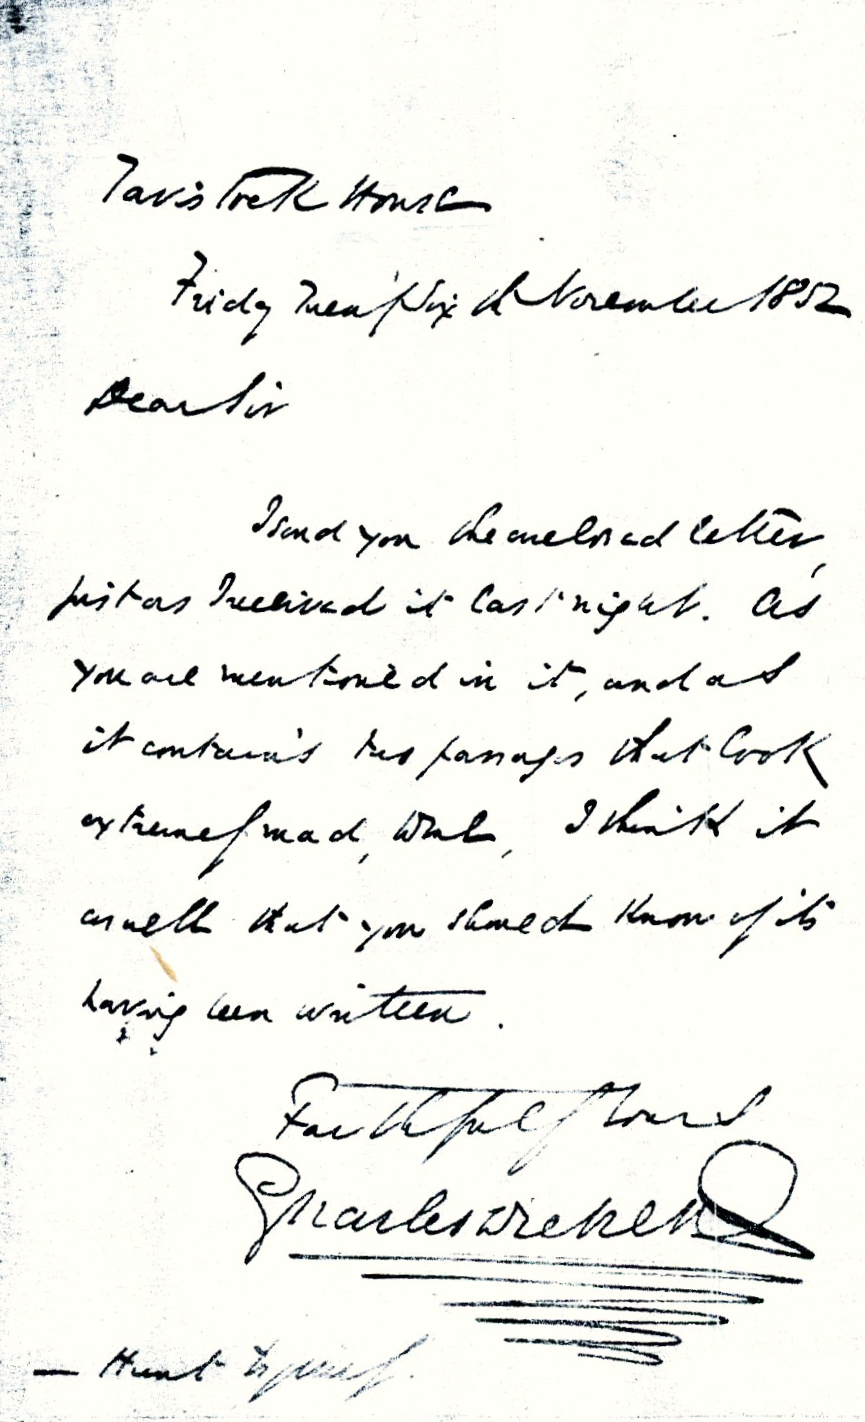 Tavistock House
Friday Twenty Sixth November 1852
Dear Sir
I send you the enclosed letter,
just as I received it last night. As
you are mentioned in it, and as
it contains two passages that look
extremely mad,
I think it
as well that you should know of its
having been written.
Faithfully Yours
Charles Dickens
— Hunt Esquire.